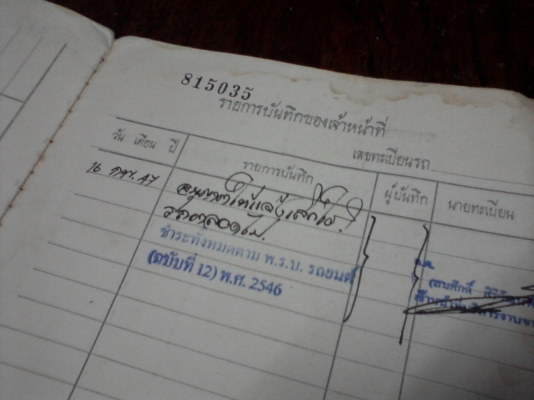 815035
รายการบันทึกของเจ้าหน้าที่
เลขทะเบียนรถ
วัน เดือน ปี
รายการบันทึก
ผู้บันทึก
นายทะเบียน
16 กพ. 47
อนุญาตให้แจ้งเลิกใช้
รถตลอดไป.
ชำระทั้งหมดตาม พ.ร.บ. รถยนต์
(ฉบับที่ 12) พ.ศ. 2546